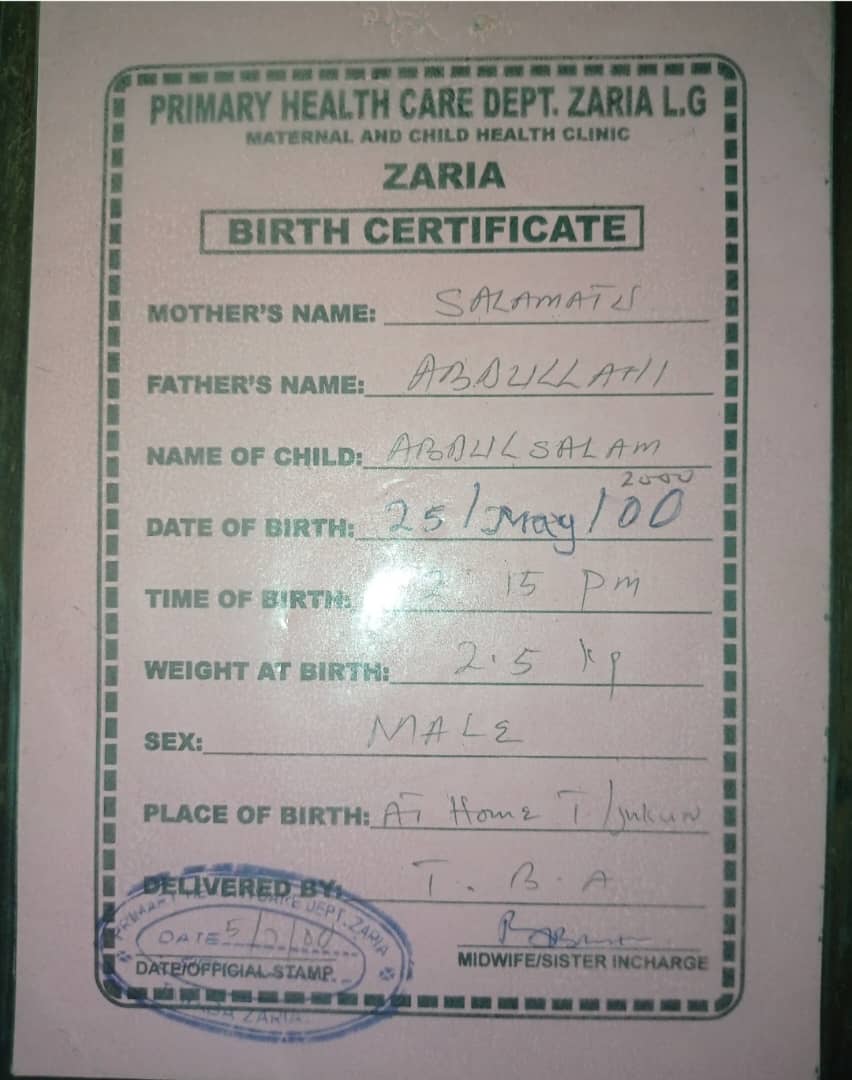 PRIMARY HEALTH CARE DEPT. ZARIA L.G
MATERNAL AND CHILD HEALTH CLINIC
ZARIA
BIRTH CERTIFICATE
MOTHER'S NAME: SALAMATU
FATHER'S NAME: ABDULLAHI
NAME OF CHILD: ABDULSALAM
2000
DATE OF BIRTH: 25/May/00
TIME OF BIRTH: 15 pm
WEIGHT AT BIRTH: 2.5 kg
SEX: MALE
PLACE OF BIRTH: AT Home T/Jukun
DELIVERED BY: T.B.A
PRIMARY CARE DEPT. ZARIA
DATE
DATE/OFFICIAL STAMP
MIDWIFE/SISTER INCHARGE
ZARIA